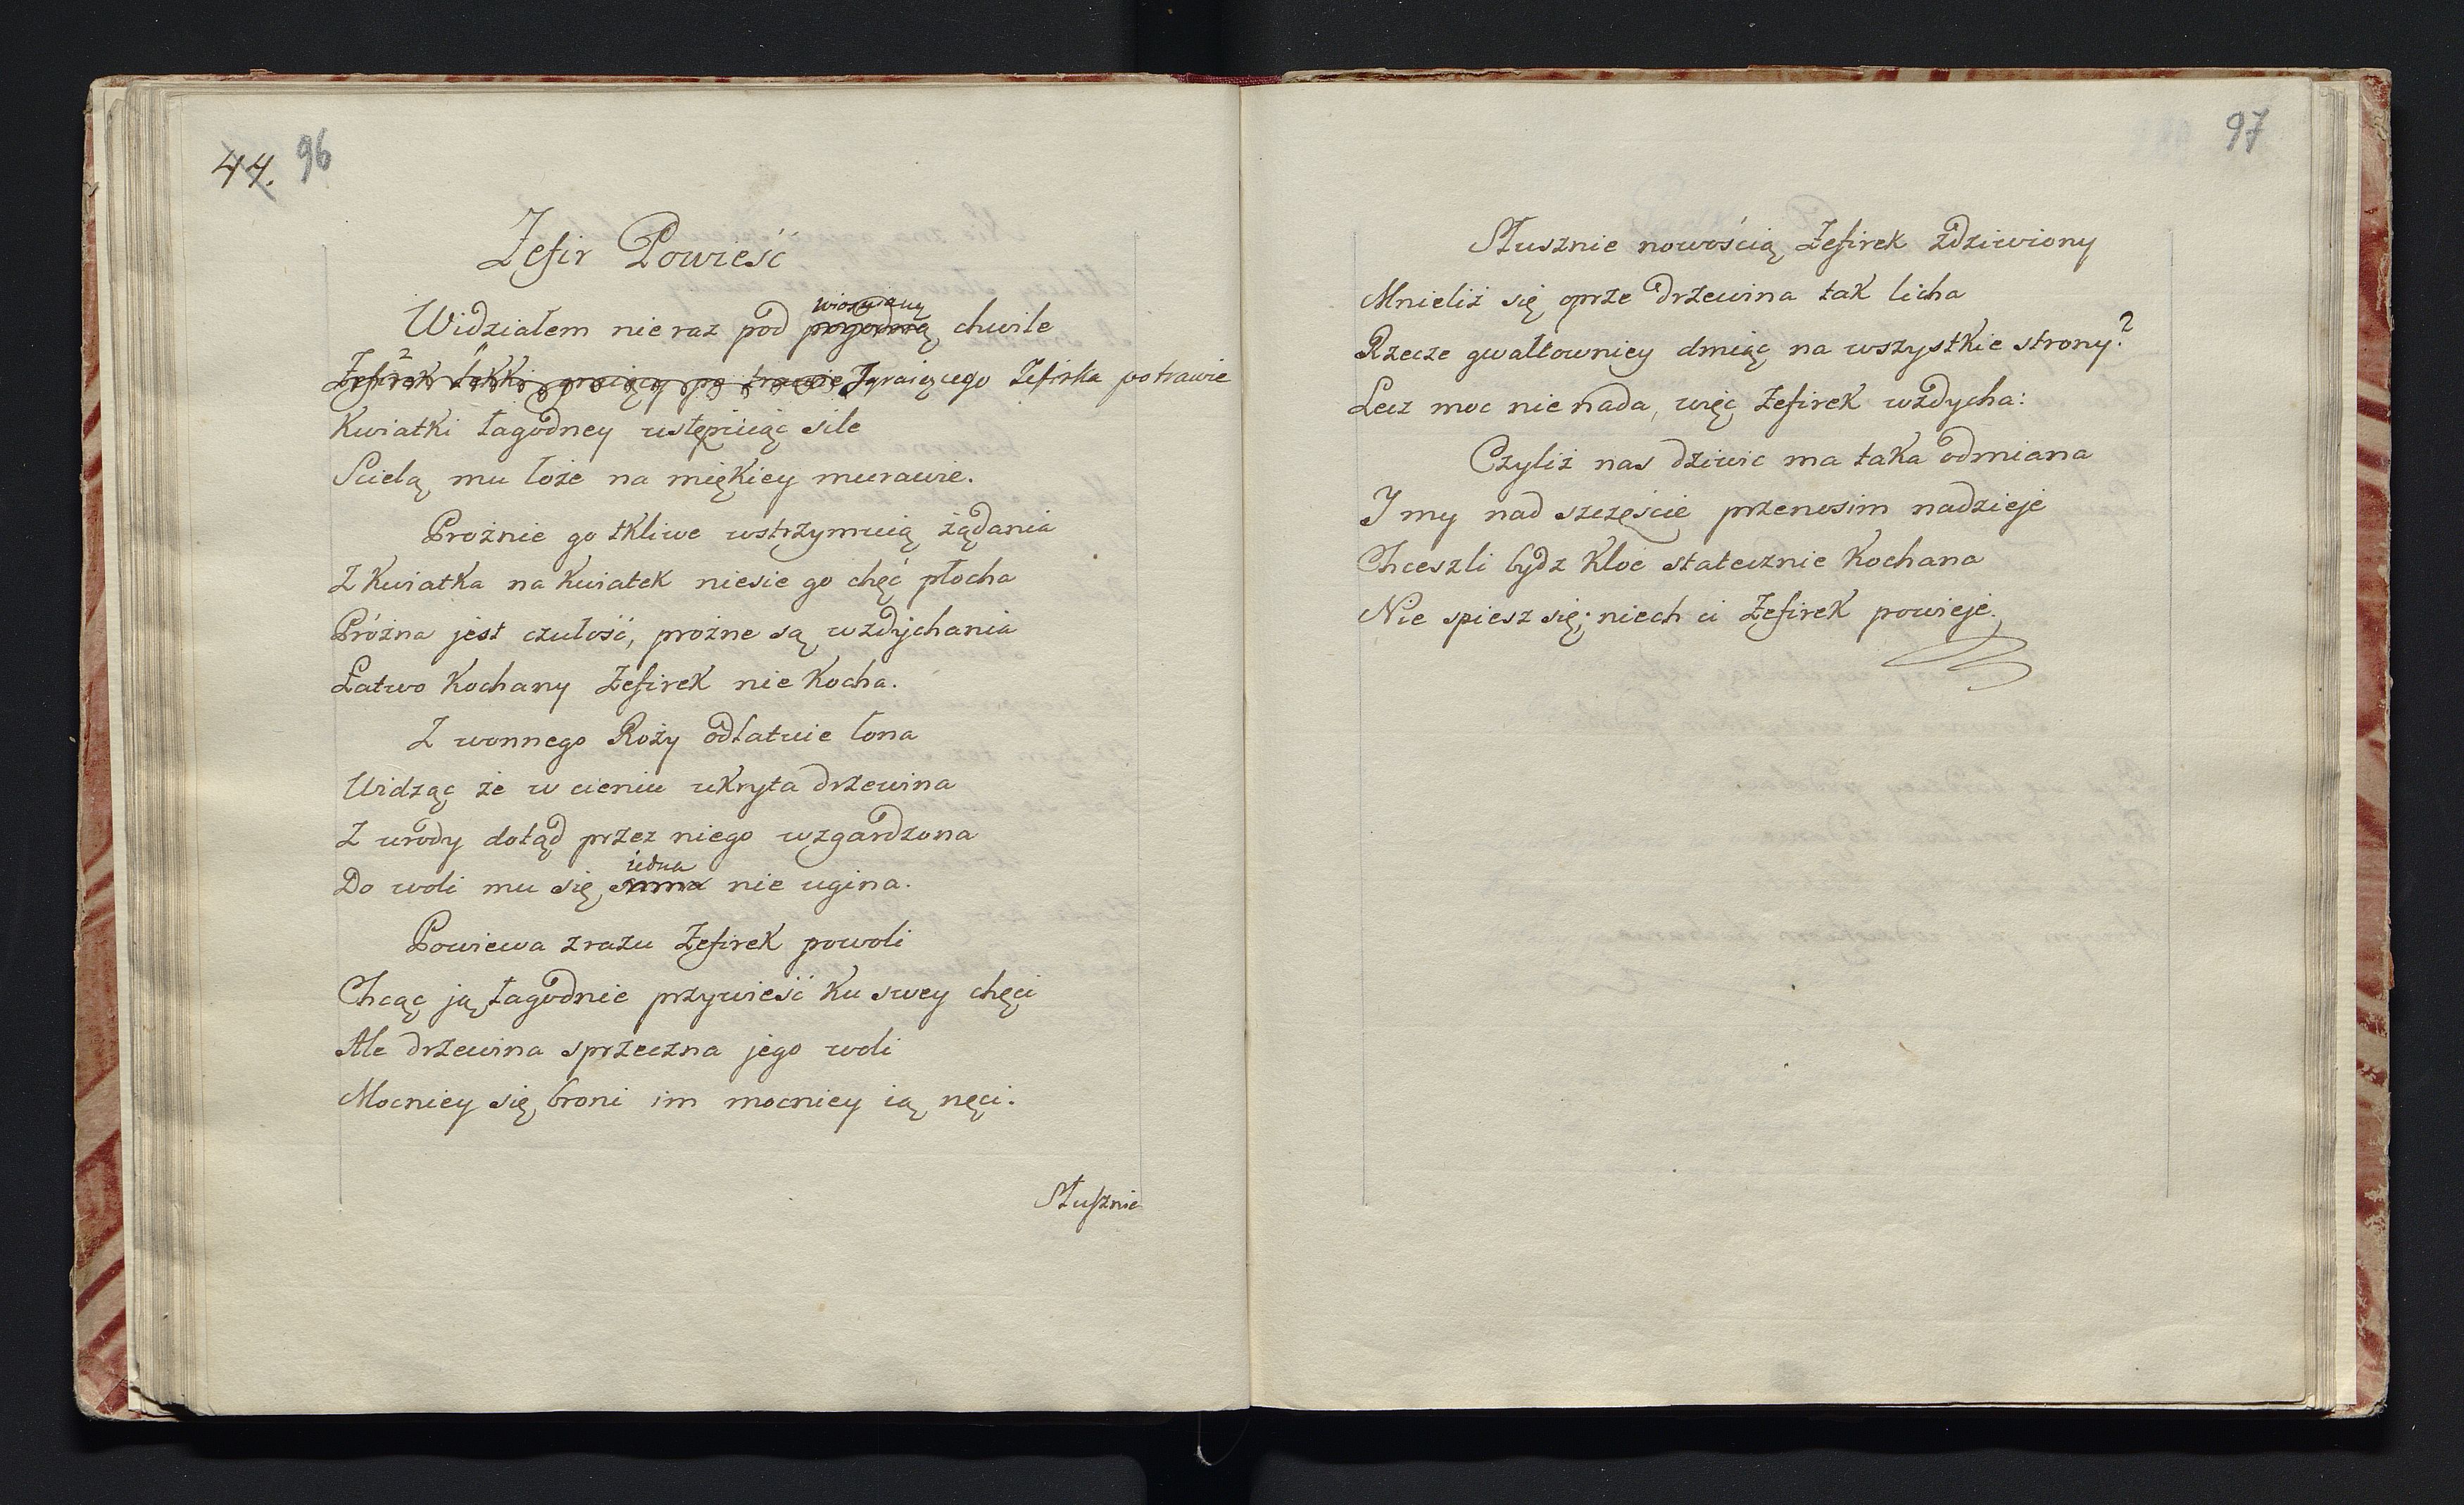 44. 96
Zefir Powieść
wiosnianą
Widziałem nie raz pod pogodną chwile
Zefirek lekki graiący po trawie Jgraiącego Zefirka po trawie
Kwiatki łagodney ustępuiąc sile
Scielą mu łoże na miękiey murawie.
Prożnie go tkliwe wstrzymuią żądania
Z kwiatka na kwiatek niesie go chęć płocha
Próżna jest czułość, prożne są wzdychania
Łatwo kochany Zefirek nie kocha.
Z wonnego Roży odlatuie łona
Widząc że w cieniu ukryta drzewina
Z urody dotąd przez niego wzgardzona
iedna
Do woli mu się nie ugina.
Powiewa zrazu Zefirek powoli
Chcąc ją łagodnie przywieść ku swey chęci
Ale drzewina sprzeczna jego woli
Mocniey się broni im mocniey ią nęci.
Słusznie
97
Słusznie nowością Zefirek zdziwiony
Mnieliż się oprze drzewina tak licha
Rzecze gwałtowniey dmiąc na wszystkie strony?
Lecz moc nie nada, więc Zefirek wzdycha:
Czyliż nas dziwic ma taka odmiana
I my nad szczęście przenosim nadzieje
Chceszli bydz Kloe statecznie kochana
Nie spiesz się; niech ci Zefirek powieje.